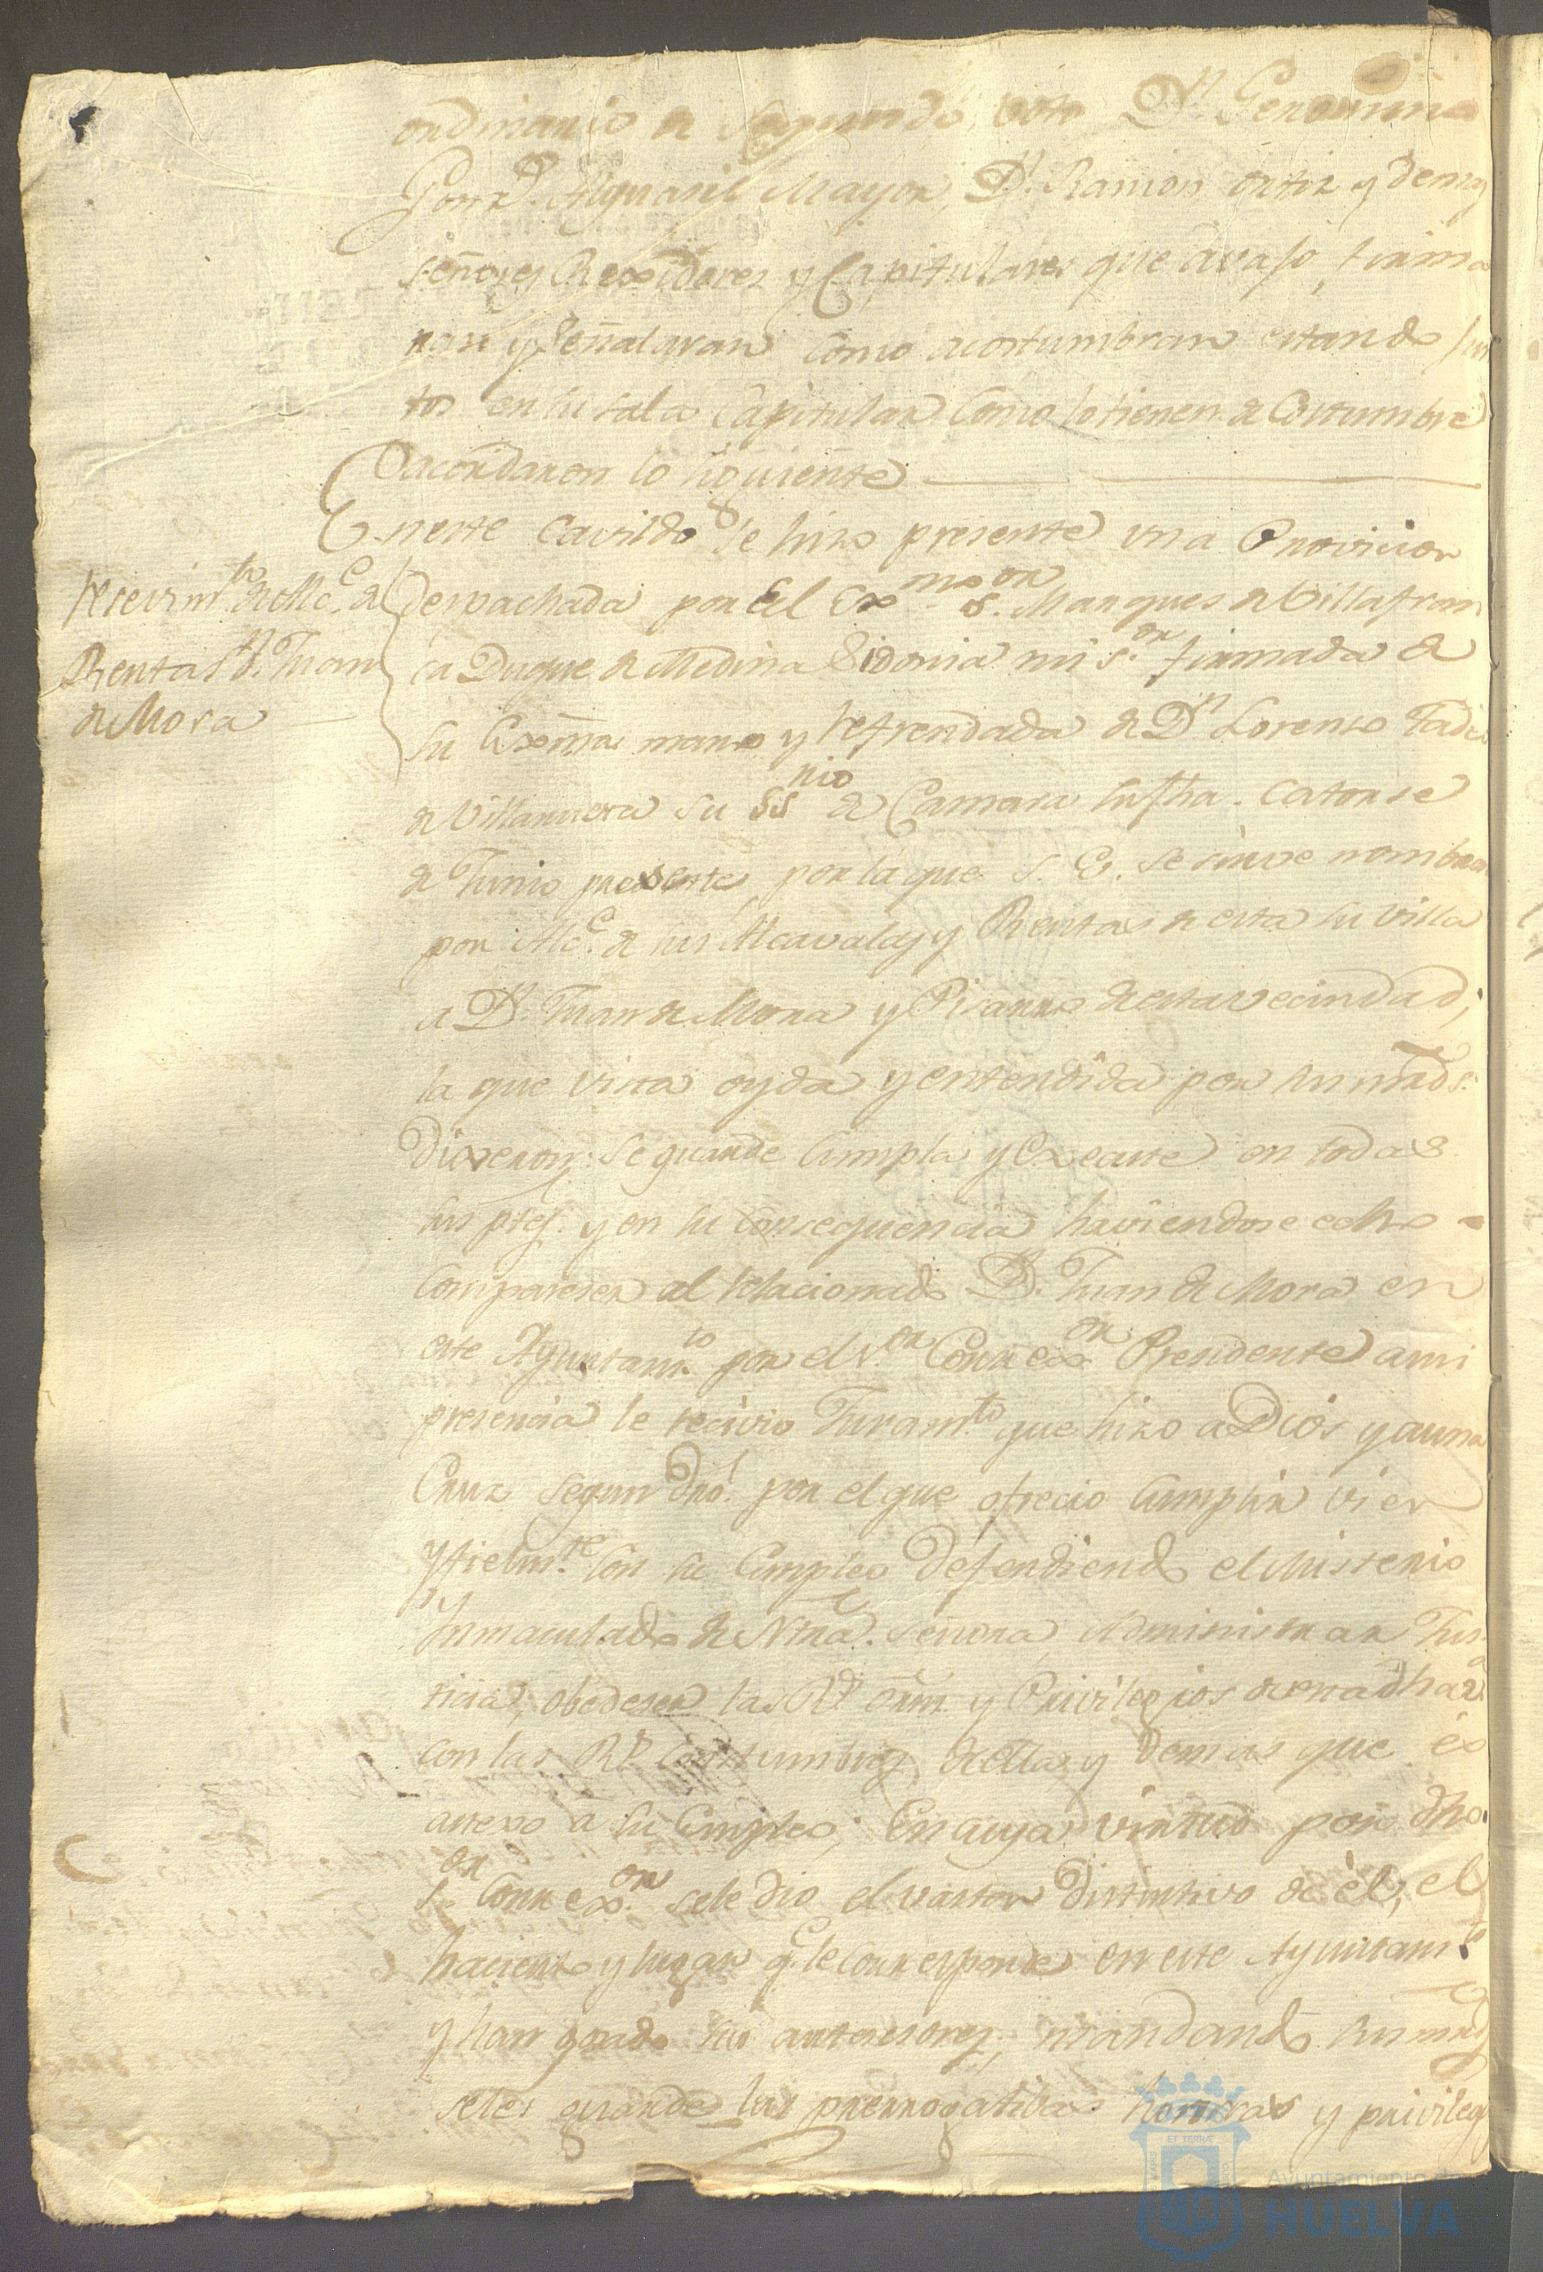 ordinario de segundo voto Dn. Geronimo
Gonz. Alguasil Mayor, Dn. Ramon Ortiz y demas
señores Rexidores y Capitulares que avajo, firma
ran y señalaran como acostumbran estando jun
tos en su sala Capitular como lo tienen de Costumbre
acordaron lo siguiente
En este Cavildo se hizo presente una Provicion
Resevimto. de Alce. de
Rentas Dn. Juan
de Mora
despachada por El Exmo. sor. Marques de Villafran
ca Duque de Medina Sidonia mi sor. firmada de
su Exma. mano y refrendada de Dn. Lorenso Tadeo
de Villanueva su ssnio de Camara su fha. Catorse
de Junio presente, por la que S. E. se sirve nombrar
por Alce. de sus Alcavalas y Rentas de esta su villa
a Dn. Juan de Mora y Pisarro de esta vecindad,
la que vista oyda y entendida por sus mrds.
Dixeron: se guarde Cumpla y Execute en todas
sus ptes. y en su consequencia haviendose echo
Compareser al relacionado Dn. Juan de Mora en
este Ayuntamto. por el sor. Correxor. Precidente a mi
presencia le recivio Juramto. que hizo a Dios y a una
Cruz segun dro. por el que ofrecio Cumplir vien
y fielmte. con su Empleo defendiendo el Misterio
Inmaculado de Ntra. Señora, Administrar Jus
ticia, obedeser las Rs. orns. y Privilegios
con las Rs. Costumbres de ella y demas que es
anexo a su Empleo; En cuya virtud por dho.
sor. Correxor. se le dio el vaston distintivo de él, el
haciento y lugar qe. le corresponde en este Ayuntamto.
y han gozado sus antesesores, mandando sus mrds
se les guarde las prerrogativas honrras y privileg
Ayuntamiento de
HUELVA